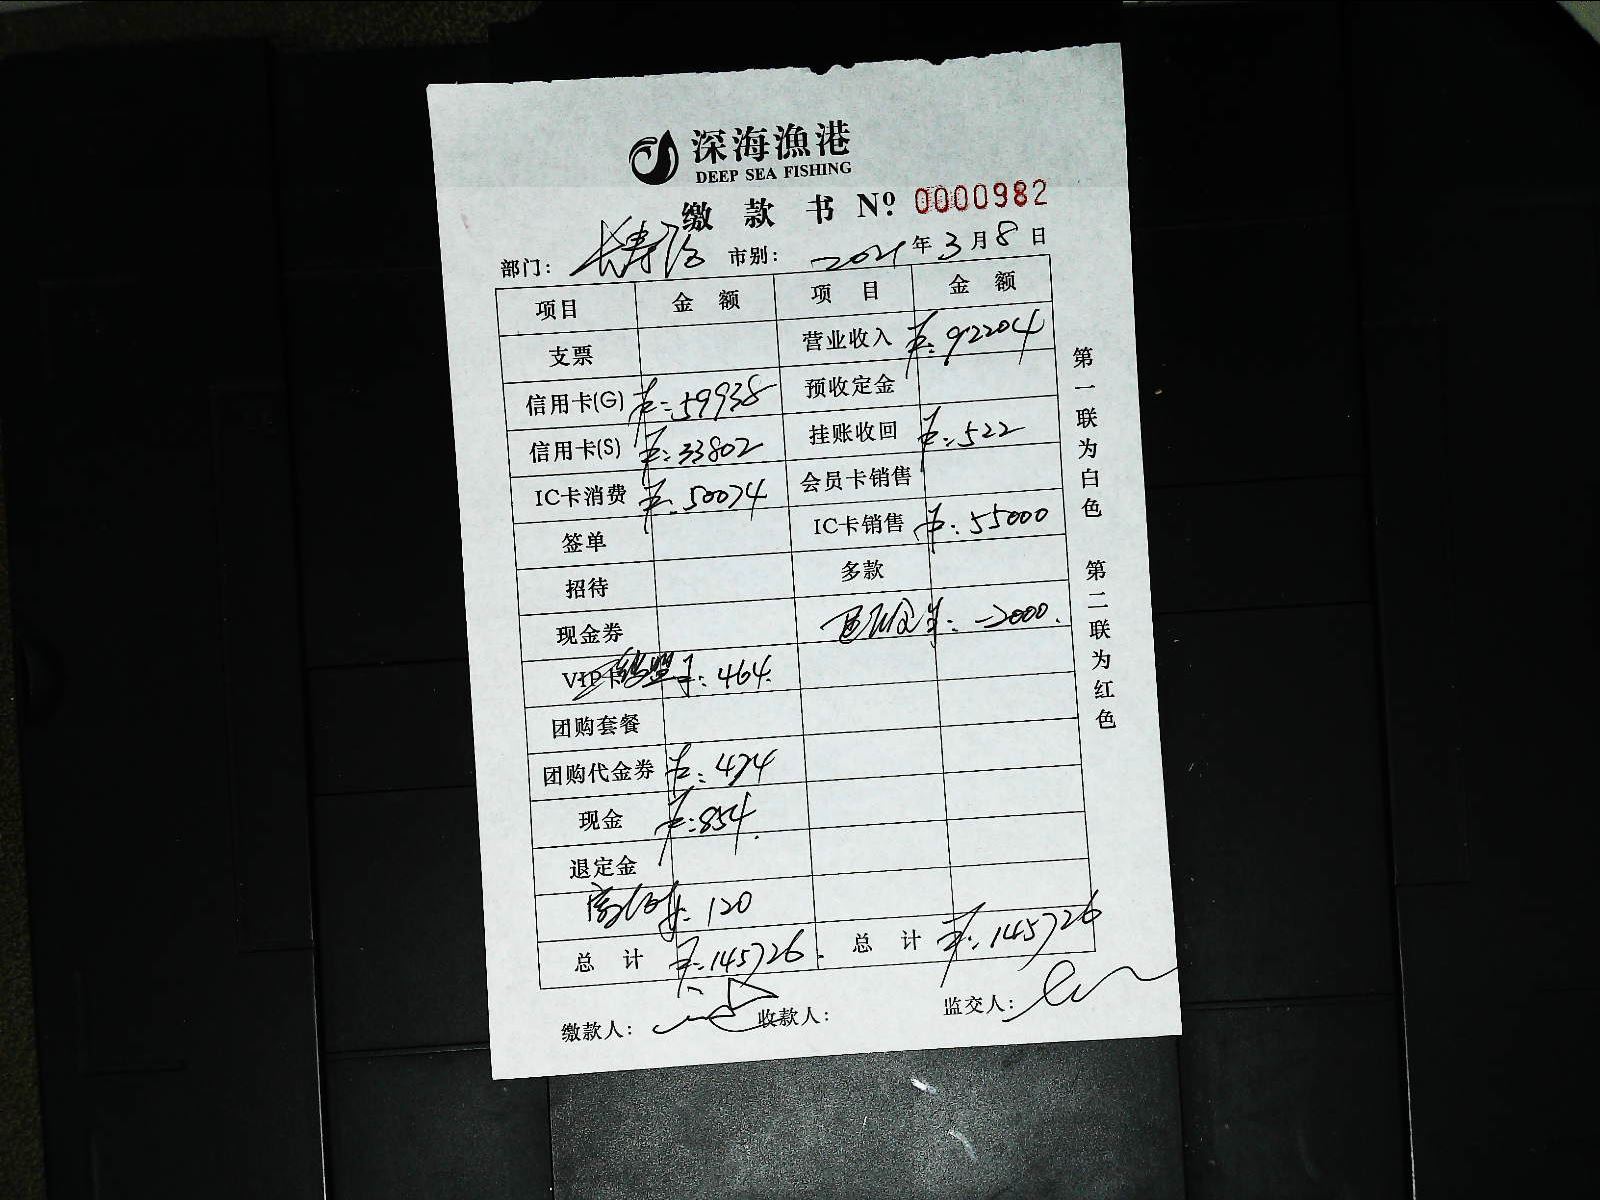 深海漁港
DEEP SEA FISHING
缴款书 Nº 0000982
部门：长寿路 市别： 2021年3月8日
项目 金额 项目 金额
支票 营业收入 ¥:92204
信用卡(G) ¥:59938 预收定金
信用卡(S) ¥:33802 挂账收回 ¥:522
IC卡消费 ¥:50074 会员卡销售
签单 IC卡销售 ¥:55000
招待 多款
现金券 -2000.
VIP卡 ¥:464.
团购套餐
团购代金券 ¥:474
现金 ¥:854.
退定金
¥:120
总计 ¥:145726. 总计 ¥:145726
缴款人： 收款人： 监交人：
第一联为白色 第二联为红色